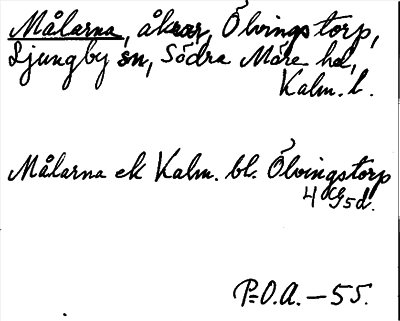 Målarna, åkrar, Ölvingstorp,
Ljungby sn, Södra Möre hd,
Kalm. l.
Målarna ek Kalm. bl. Ölvingstorp
4 G5d.
P-O.A. - 55.